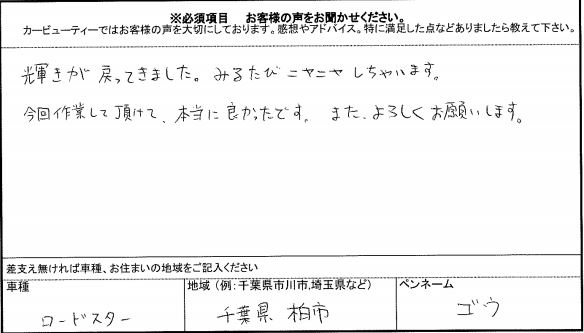 ※必須項目　お客様の声をお聞かせください。
カービューティーではお客様の声を大切にしております。感想やアドバイス。特に満足した点などありましたら教えて下さい。
輝きが戻ってきました。みるたびニヤニヤしちゃいます。
今回作業して頂けて、本当に良かったです。また、よろしくお願いします。
差支え無ければ車種、お住まいの地域をご記入ください
車種　地域（例:千葉県市川市,埼玉県など）　ペンネーム
ロードスター　千葉県 柏市　ゴウ